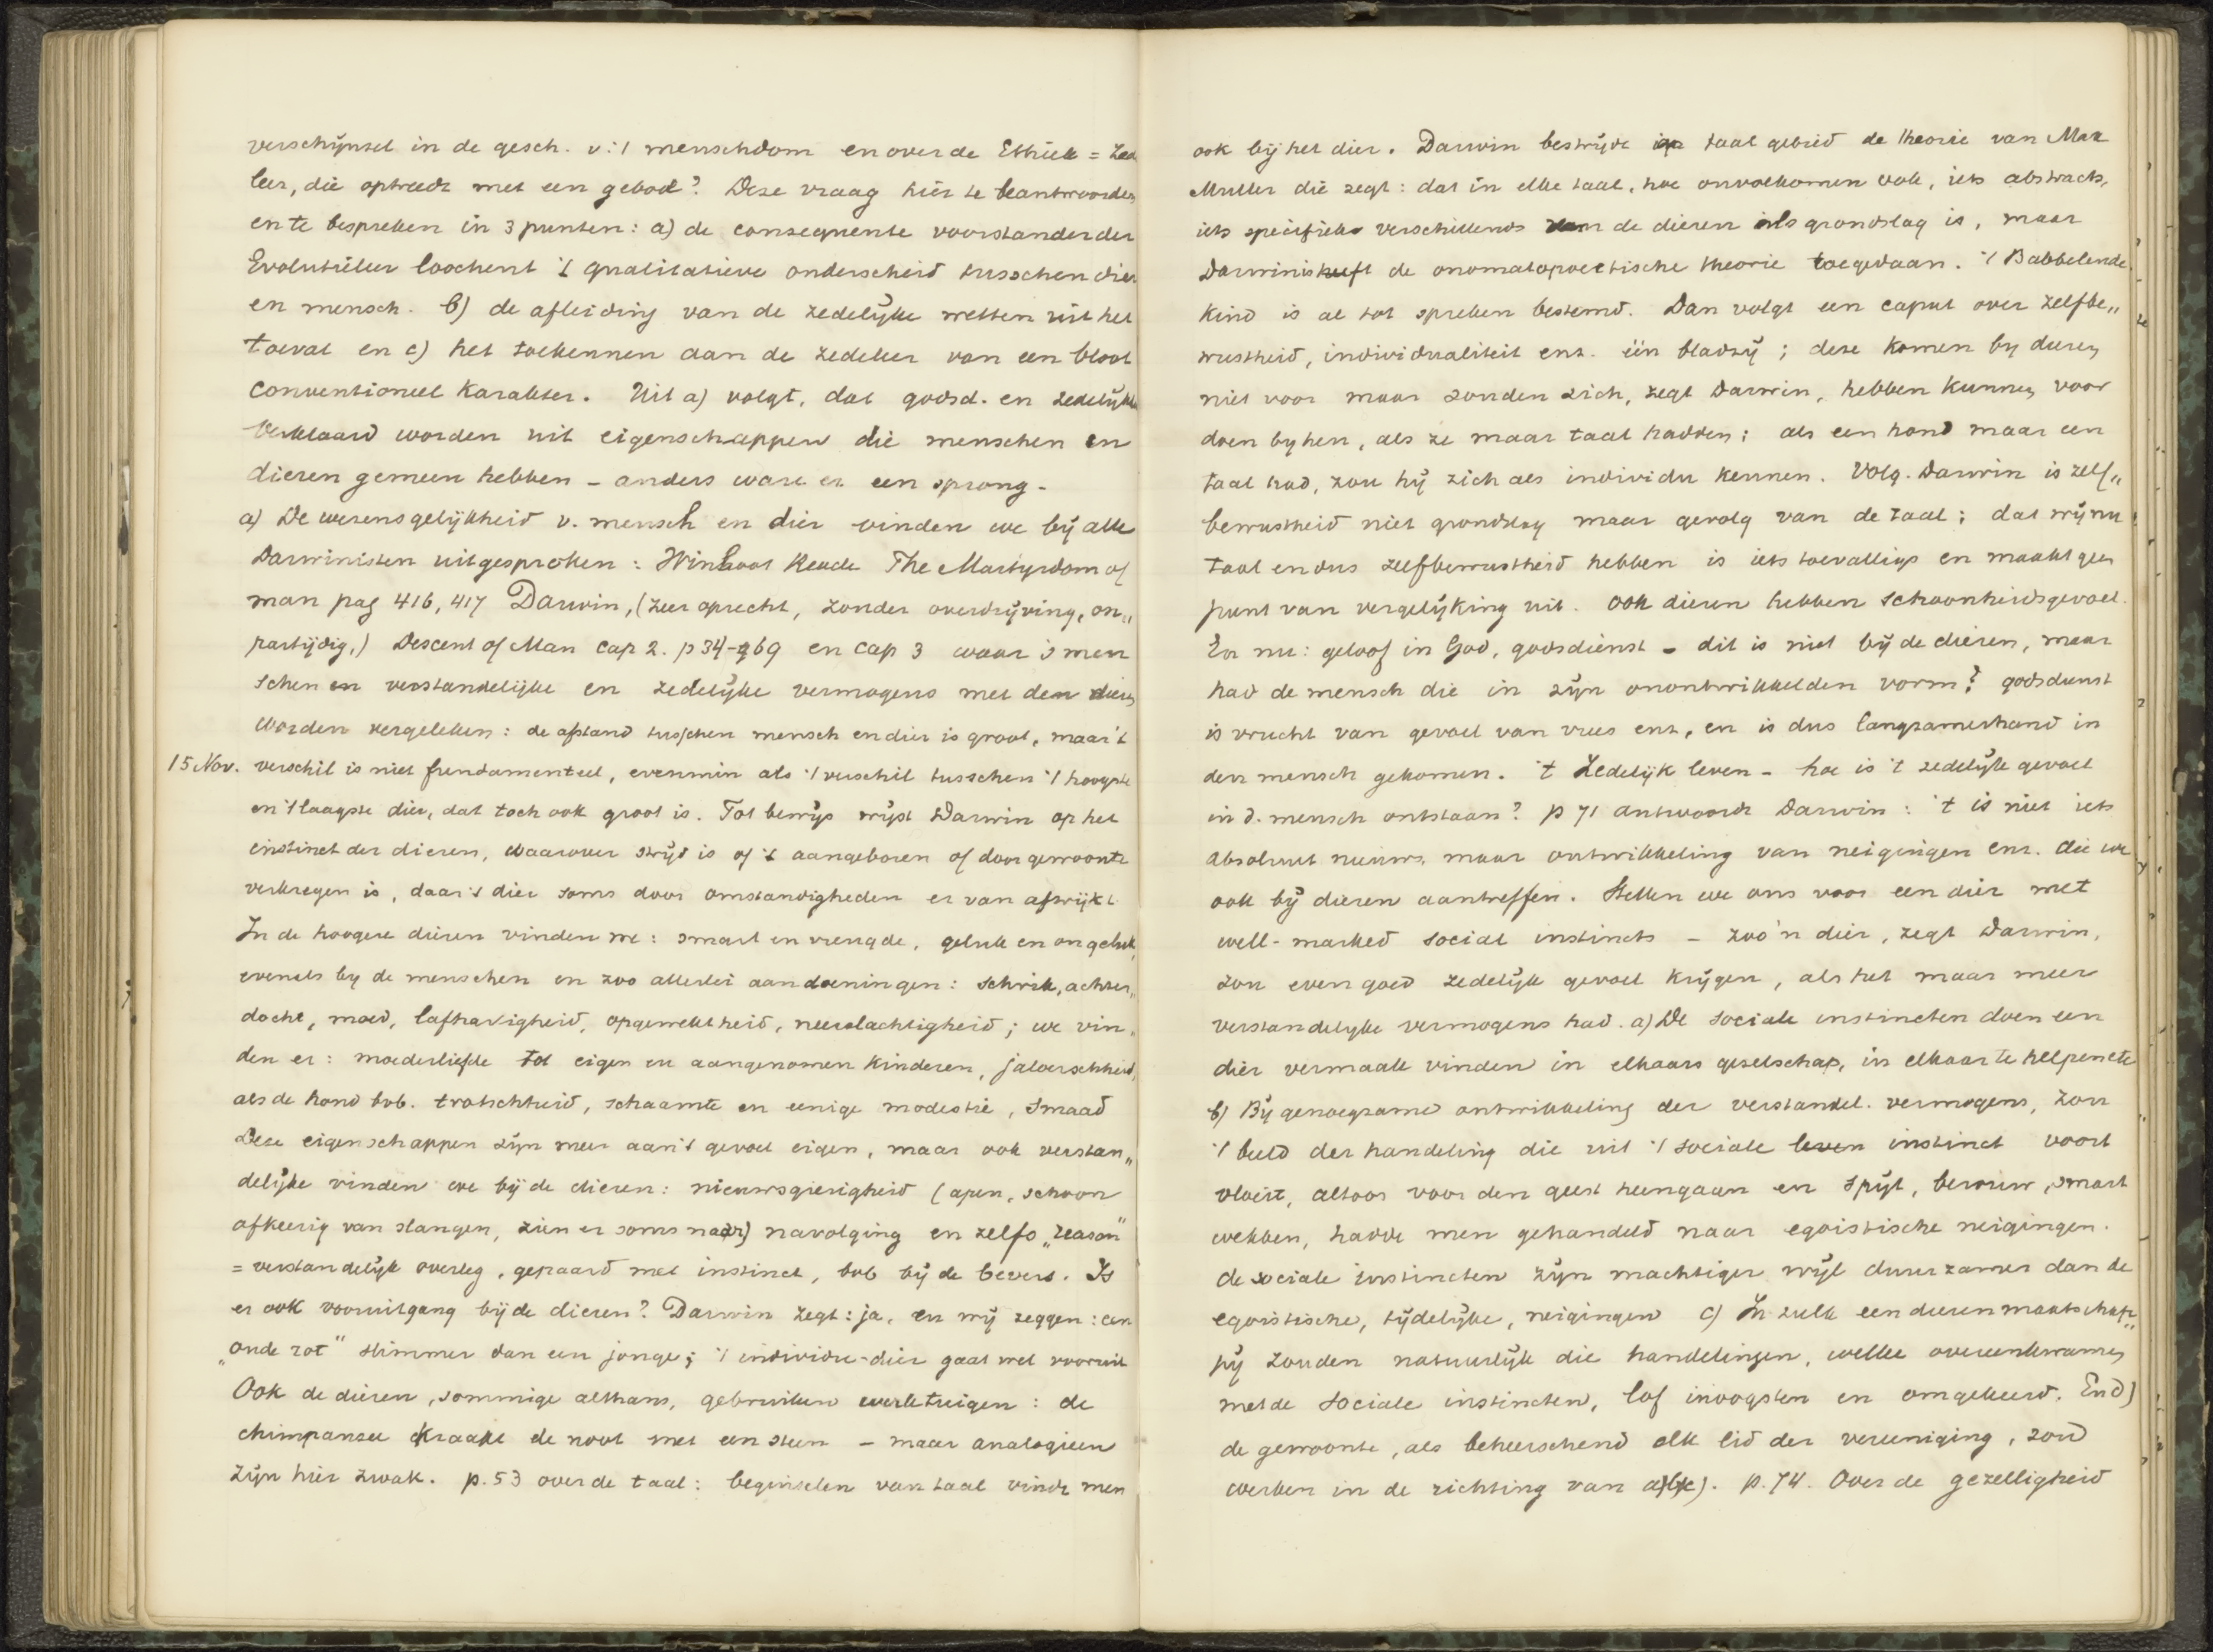 verschijnsel in de gesch. v. 't menschdom en over de Ethiek = Zed
leer, die optreedt met een gebod? Deze vraag hier te beantwoorden
en te bespreken in 3 punten: a) de consequente voorstander der
Evolutieleer loochent 't qualitatieve onderscheid tusschen dier
en mensch. b) de afleiding van de zedelijke wetten uit het
toeval en c) het toekennen aan de zedeleer van een bloot
conventioneel karakter. Uit a) volgt, dat godsd. en zedelijkh
verklaard worden uit eigenschappen die menschen en
dieren gemeen hebben – anders ware er een sprong –
a) De wezensgelijkheid v. mensch en dier vinden we bij alle
Darwinisten uitgesproken: Winwoot Reade The Martyrdom of
man pag 416, 417 Darwin, (zeer oprecht, zonder overdrijving, on„
partijdig,) Descent of Man Cap 2. p 34–69 en Cap 3 waar 's men
schen en verstandelijke en zedelijke vermogens met den dieren
worden vergeleken: de afstand tusschen mensch en dier is groot, maar 't
15 Nov. verschil is niet fundamenteel, evenmin als 't verschil tusschen 't hoogste
en 't laagste dier, dat toch ook groot is. Tot bewijs wijst Darwin op het
instinct der dieren, waarover strijd is of 't aangeboren of door gewoonte
verkregen is, daar 't dier soms door omstandigheden er van afwijkt
In de hoogere dieren vinden we: smart en vreugde, geluk en ongeluk,
evenals by de menschen en zoo allerlei aandoeningen: schrik, achter„
docht, moed, lafhartigheid, opgewektheid, neerslachtigheid; we vin„
den er: moederliefde tot eigen en aangenomen kinderen, jaloerschheid,
als de hond bvb. trotschheid, schaamte en eenige modestie, smaad
Deze eigenschappen zijn meer aan 't gevoel eigen, maar ook verstan„
delijke vinden we bij de dieren: nieuwsgierigheid (apen, schoon
afkeerig van slangen, zien er soms naar) navolging en zelfs „reason"
= verstandelijk overleg, gepaard met instinct, bvb bij de bevers. Is
er ook vooruitgang bij de dieren? Darwin zegt: ja, en wij zeggen: een
„oude rot" slimmer dan een jonge; 't individu-dier gaat wel vooruit
Ook de dieren, sommige althans, gebruiken werktuigen: de
chimpansee kraakt de noot met een steen – maar analogieen
zijn hier zwak. p. 53 over de taal: beginselen van taal vindt men
ook bij het dier. Darwin bestrijdt op taal gebied de theorie van Max
Muller die zegt: dat in elke taal, hoe onvolkomen ook, iets abstracts,
iets specifieks verschillends van de dieren als grondslag is, maar
Darwin is heeft de onomatopoetische theorie toegedaan. 't Babbelende
kind is al tot spreken bestemd. Dan volgt een caput over zelfbe„
wustheid, individualiteit enz. één bladzij; deze komen by dieren
niet voor maar zouden zich, zegt Darwin, hebben kunnen voor
doen by hen, als ze maar taal hadden; als een hond maar een
taal had, zou hij zich als individu kennen. Volg. Darwin is zelf„
bewustheid niet grondslag maar gevolg van de taal; dat wij nu
taal en dus zelfbewustheid hebben is iets toevalligs en maakt geen
punt van vergelijking uit. Ook dieren hebben schoonheidsgevoel.
En nu: geloof in God, godsdienst – dit is niet bij de dieren, maar
had de mensch die in zijn onontwikkelden vorm? godsdienst
is vrucht van gevoel van vrees enz, en is dus langzamerhand in
den mensch gekomen. 't Zedelijk leven – hoe is 't zedelijk gevoel
in d. mensch ontstaan? p 71 antwoordt Darwin: 't is niet iets
absoluut nieuws, maar ontwikkeling van neigingen enz. die we
ook bij dieren aantreffen. Stellen we ons voor een dier met
well-marked social instincts – zoo'n dier, zegt Darwin,
zou even goed zedelijk gevoel krijgen, als het maar meer
verstandelyke vermogens had. a) De sociale instincten doen een
dier vermaak vinden in elkaars gezelschap, in elkaar te helpen etc
b) Bij genoegzame ontwikkeling der verstandel. vermogens, zou
't beeld der handeling die uit 't sociale leven instinct voort
vloeit, altoos voor den geest heengaan en spijt, berouw, smart
wekken, hadde men gehandeld naar egoistische neigingen.
de sociale instincten zijn machtiger wijl duurzamer dan de
egoistische, tijdelijke, neigingen c) In zulk een dierenmaatschap„
pij zouden natuurlijk die handelingen, welke overeenkwamen
met de sociale instincten, lof inoogsten en omgekeerd. En d)
de gewoonte, als beheerschend elk lid der vereeniging, zou
werken in de richting van a) b) c). p. 74. Over de gezelligheid